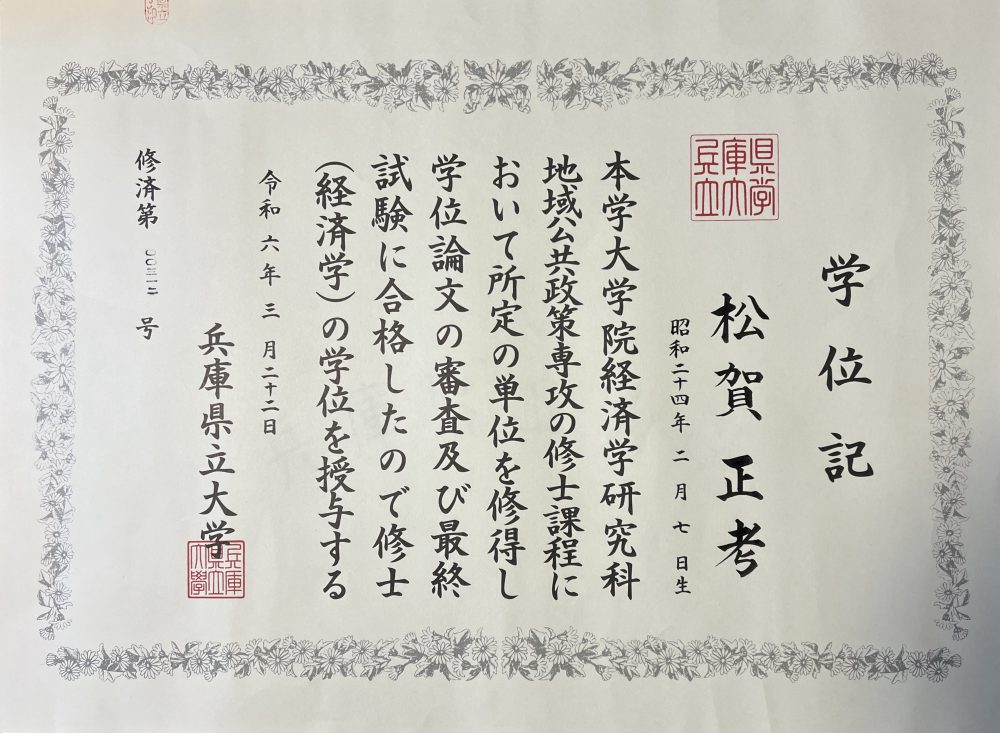 学位記
松賀正考
昭和二十四年二月七日生
本学大学院経済学研究科
地域公共政策専攻の修士課程に
おいて所定の単位を修得し
学位論文の審査及び最終
試験に合格したので修士
(経済学)の学位を授与する
令和六年三月二十二日
兵庫県立大学
修済第 号